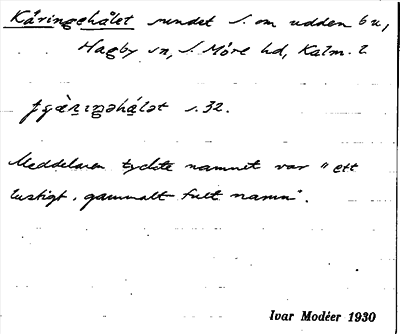 Kåringehålet sundet s. om udden 6 u,
Hagby sn, S. Möre hd, Kalm. l.
s. 32.
Meddelaren tyckte namnet var "ett
lustigt, gammalt fult namn".
Ivar Modéer 1930